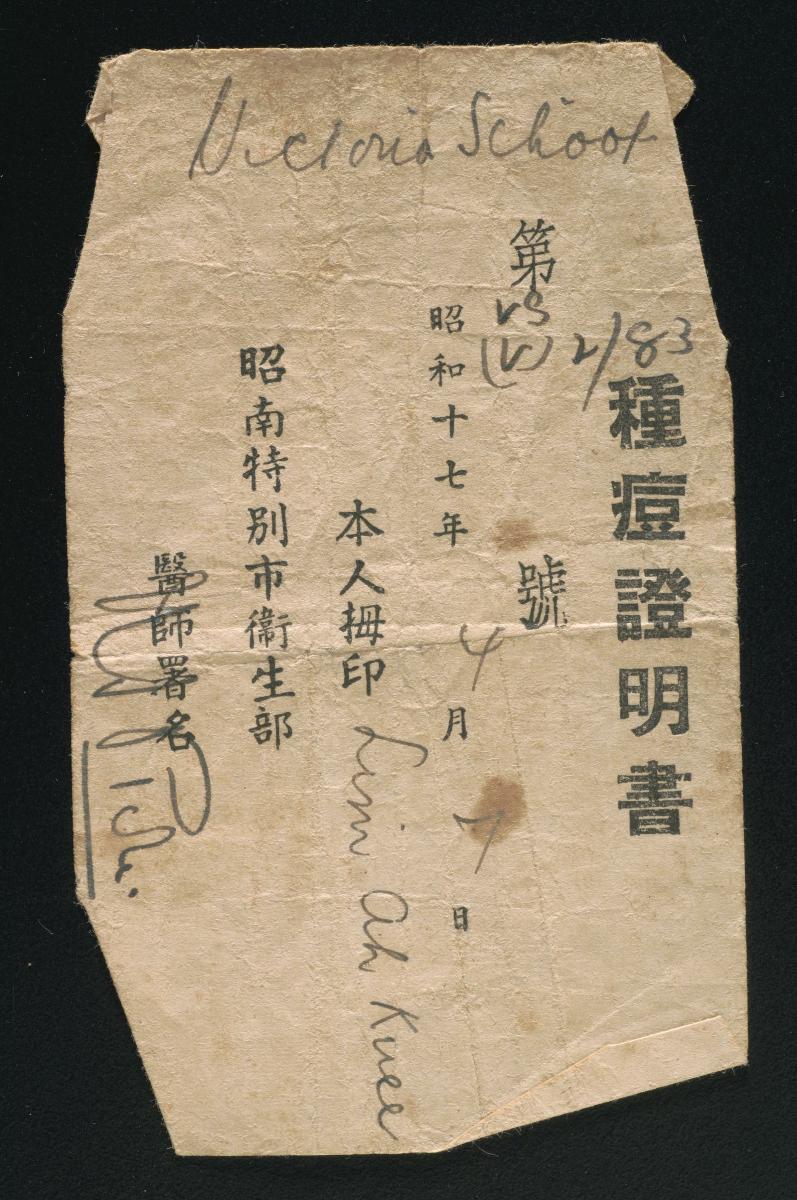 Victoria School
種痘證明書
第 VS (V) 2/83 號
昭和十七年 4 月 7 日
本人拇印 Lim Ah Kuee
昭南特別市衞生部
醫師署名